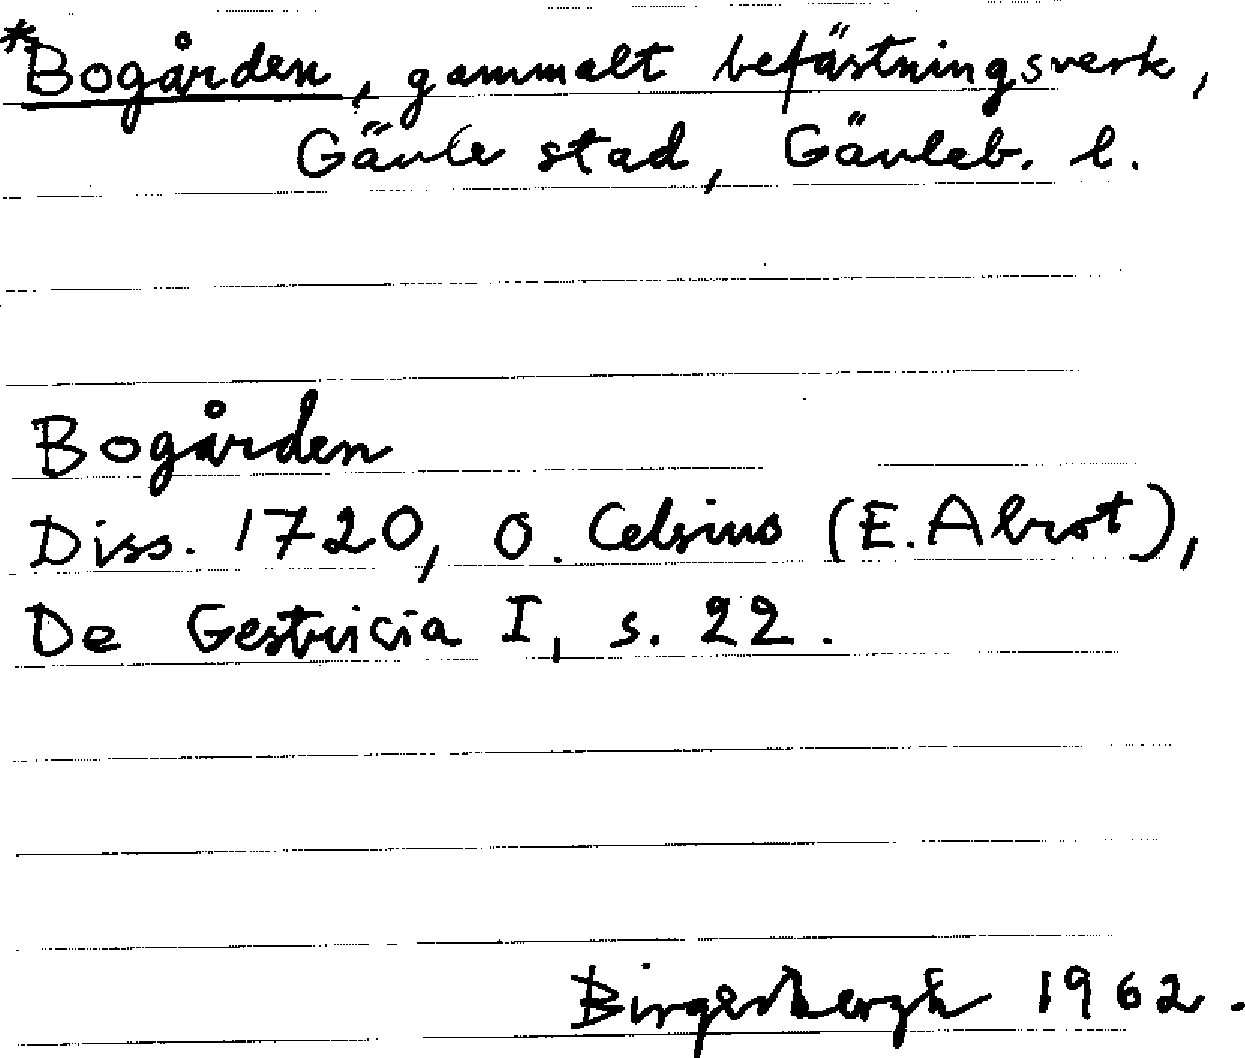 *Bogården, gammalt befästningsverk,
Gävle stad, Gävleb. l.
Bogården
Diss. 1720, O. Celsius (E. Abrot),
De Gestricia I, s. 22.
Birger Bergh 1962.